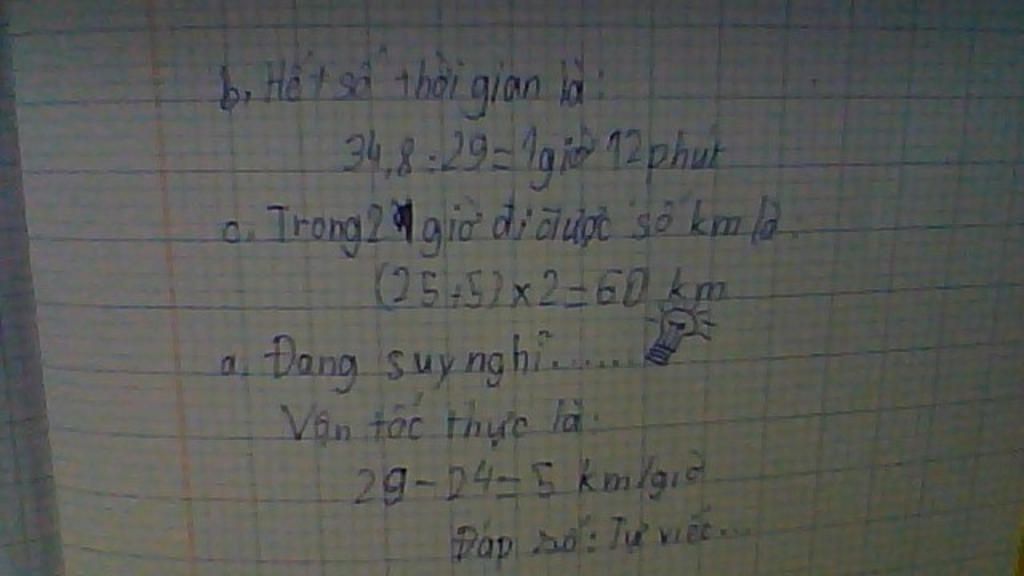 b, Hết số thời gian là:
34,8 : 29 = 1 giờ 12 phút
c. Trong 2 giờ đi được số km là
(25+5) x 2 = 60 km
a. Đang suy nghĩ.......
Vận tốc thực là:
29 - 24 = 5 km/giờ
Đáp số: Tự viết...